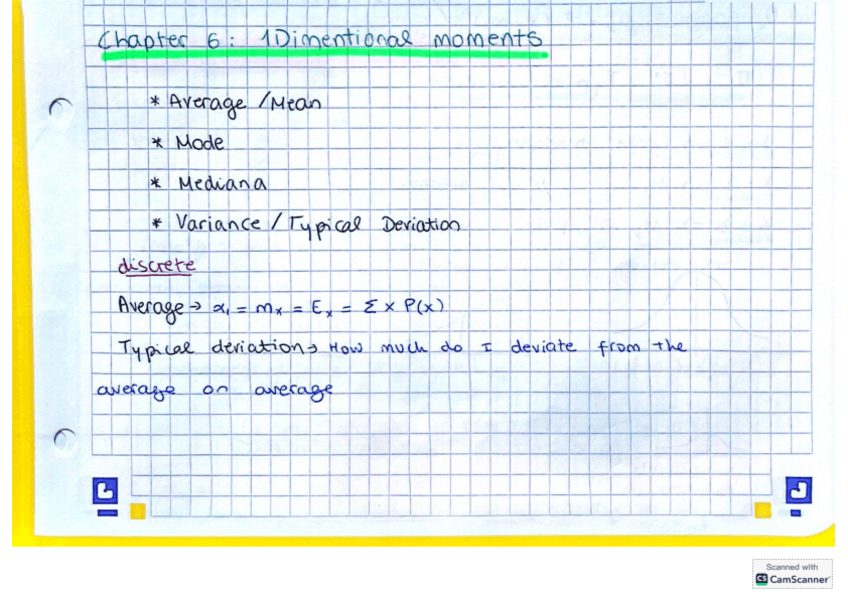 Chapter 6: 1Dimentional moments
* Average / Mean
* Mode
* Mediana
* Variance / Typical Deviation
discrete
Average → α₁ = mₓ = Eₓ = Σ x P(x)
Typical deviation → How much do I deviate from the
average on average
Scanned with
CS CamScanner